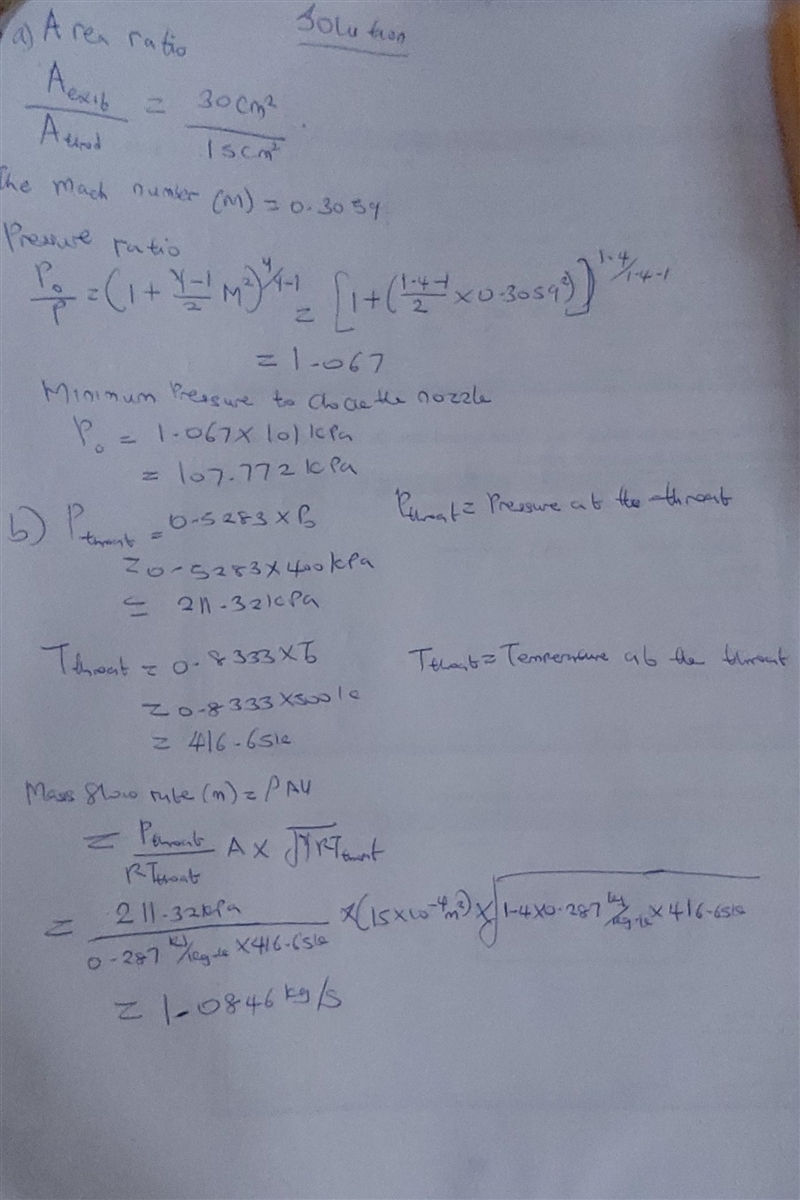 Solution
a) Area ratio
Aexit / Athroat = 30cm² / 15cm².
The mach number (M) = 0.3059
Pressure ratio
P₀/P = (1 + γ-1/2 M²)^γ/γ-1 = [1 + (1.4-1/2 × 0.3059²)]^1.4/1.4-1
= 1.067
Minimum Pressure to choke the nozzle
P₀ = 1.067 × 101kPa
= 107.772kPa
b) Pthroat = 0.5283 × P₀ Pthroat = Pressure at the throat
= 0.5283 × 400kPa
= 211.32kPa
Tthroat = 0.8333 × T₀ Tthroat = Temperature at the throat
= 0.8333 × 500k
= 416.65k
Mass flow rate (m) = ρAV
= Pthroat / RTthroat A × √γRTthroat
= 211.32kPa / 0.287 kJ/kg-k × 416.65k × (15×10⁻⁴m²) × √1.4×0.287 kJ/kg-k × 416.65k
= 1.0846 kg/s